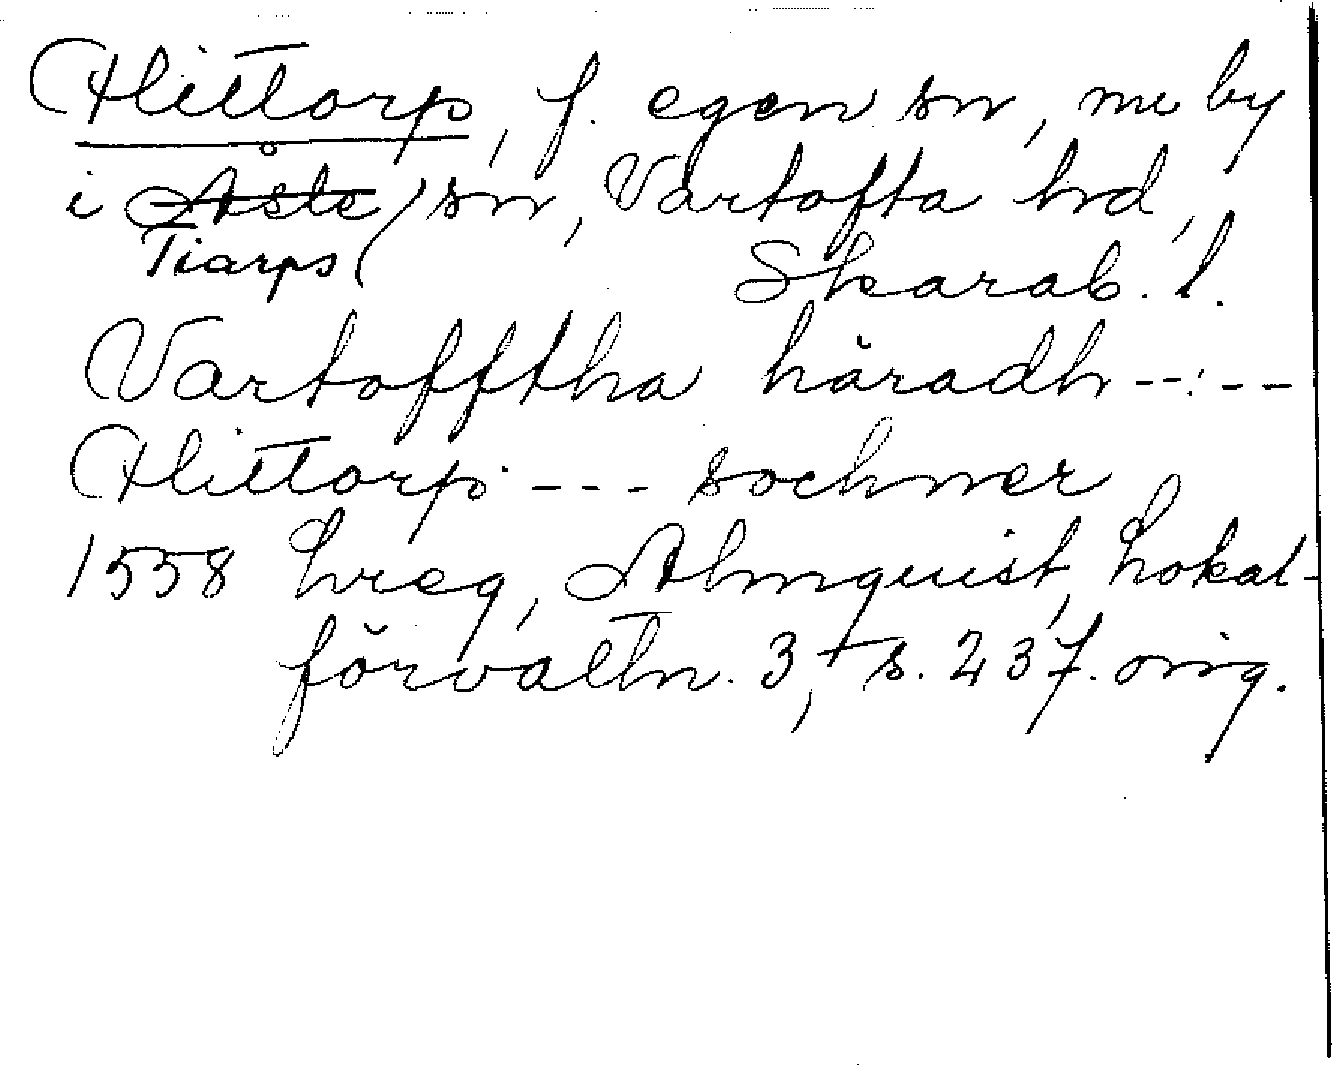 Hittorp, f. egen sn, nu by
i Åsle sn, Vartofta hd,
Tiarps
Skarab. l.
Vartofftha häradh --:--
Hittorp --- sochner
1558 Lreg, Almquist, Lokal-
förvaltn. 3, s. 237. orig.